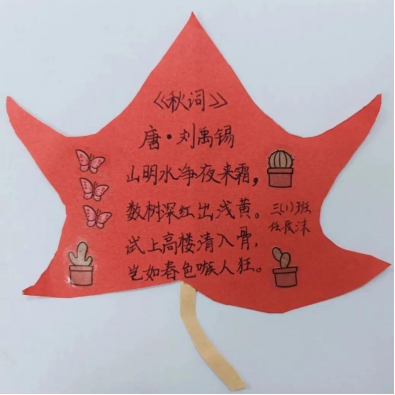 《秋词》
唐·刘禹锡
山明水净夜来霜，
数树深红出浅黄。
试上高楼清入骨，
岂如春色嗾人狂。
三(1)班